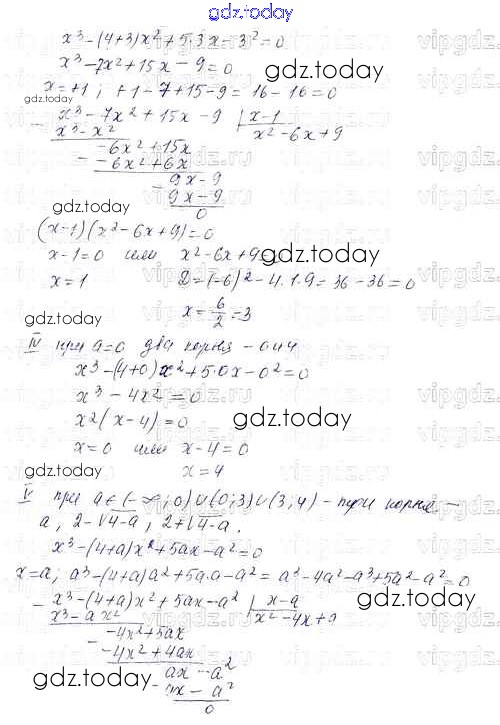 gdz.today
x³-(4+3)x²+5·3x-3²=0
x³-7x²+15x-9=0
gdz.today
x=+1; +1-7+15-9=16-16=0
gdz.today
- x³-7x²+15x-9 | x-1
x³-x² x²-6x+9
-6x²+15x
- -6x²+6x
9x-9
- 9x-9
0
gdz.today
(x-1)(x²-6x+9)=0
x-1=0 или x²-6x+9
gdz.today
x=1 D=(-6)²-4·1·9=36-36=0
x=6/2=3
gdz.today
IV при a=0 два корня - 0 и 4
x³-(4+0)x²+5·0x-0²=0
x³-4x²=0
x²(x-4)=0
gdz.today
x=0 или x-4=0
x=4
gdz.today
V при a∈(-∞;0)∪(0;3)∪(3;4) - три корня -
a, 2-√4-a, 2+√4-a.
x³-(4+a)x²+5ax-a²=0
x=a; a³-(4+a)a²+5a·a-a²=a³-4a²-a³+5a²-a²=0
- x³-(4+a)x²+5ax-a² | x-a
gdz.today
x³-ax² x²-4x+a
-4x²+5ax
- -4x²+4ax
ax-a²
gdz.today
- ax-a²
0
vipgdz.ru